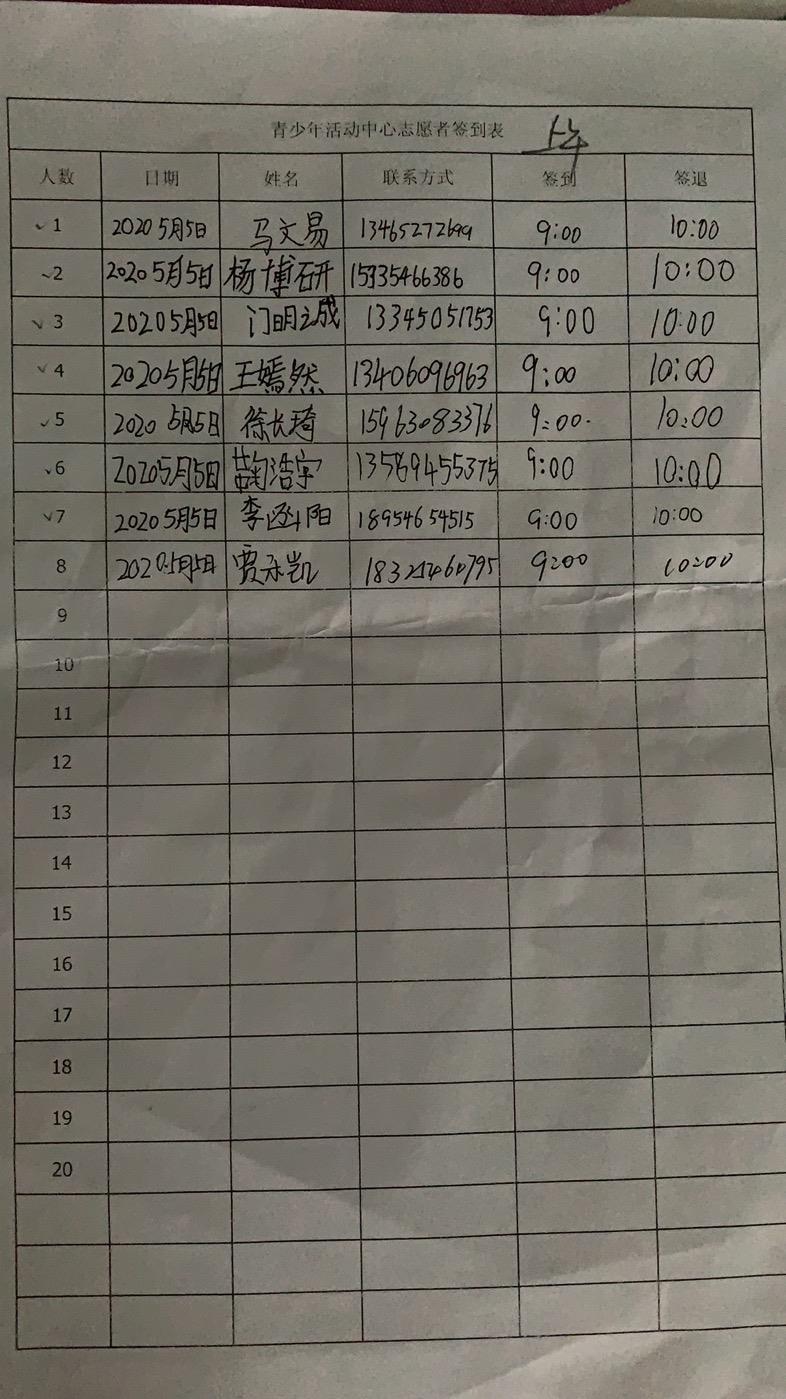 青少年活动中心志愿者签到表 上午
人数 日期 姓名 联系方式 签到 签退
✓1 2020 5月5日 马文易 13465272699 9:00 10:00
✓2 2020 5月5日 杨博研 15935466386 9:00 10:00
✓3 2020 5月5日 门明之成 13345051753 9:00 10:00
✓4 2020 5月5日 王嫣然 13406096963 9:00 10:00
✓5 2020 5月5日 徐长琦 15963083376 9:00 10:00
✓6 2020 5月5日 浩宇 13589455375 9:00 10:00
✓7 2020 5月5日 李 阳 18954654515 9:00 10:00
8 2020.5月5日 贾永凯 9:00 10:00
9
10
11
12
13
14
15
16
17
18
19
20